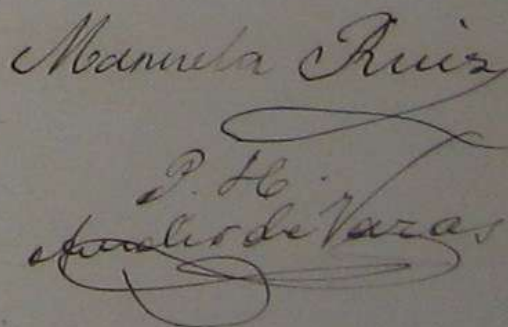 Manuela Ruiz
P. H.
Aurelio de Varas